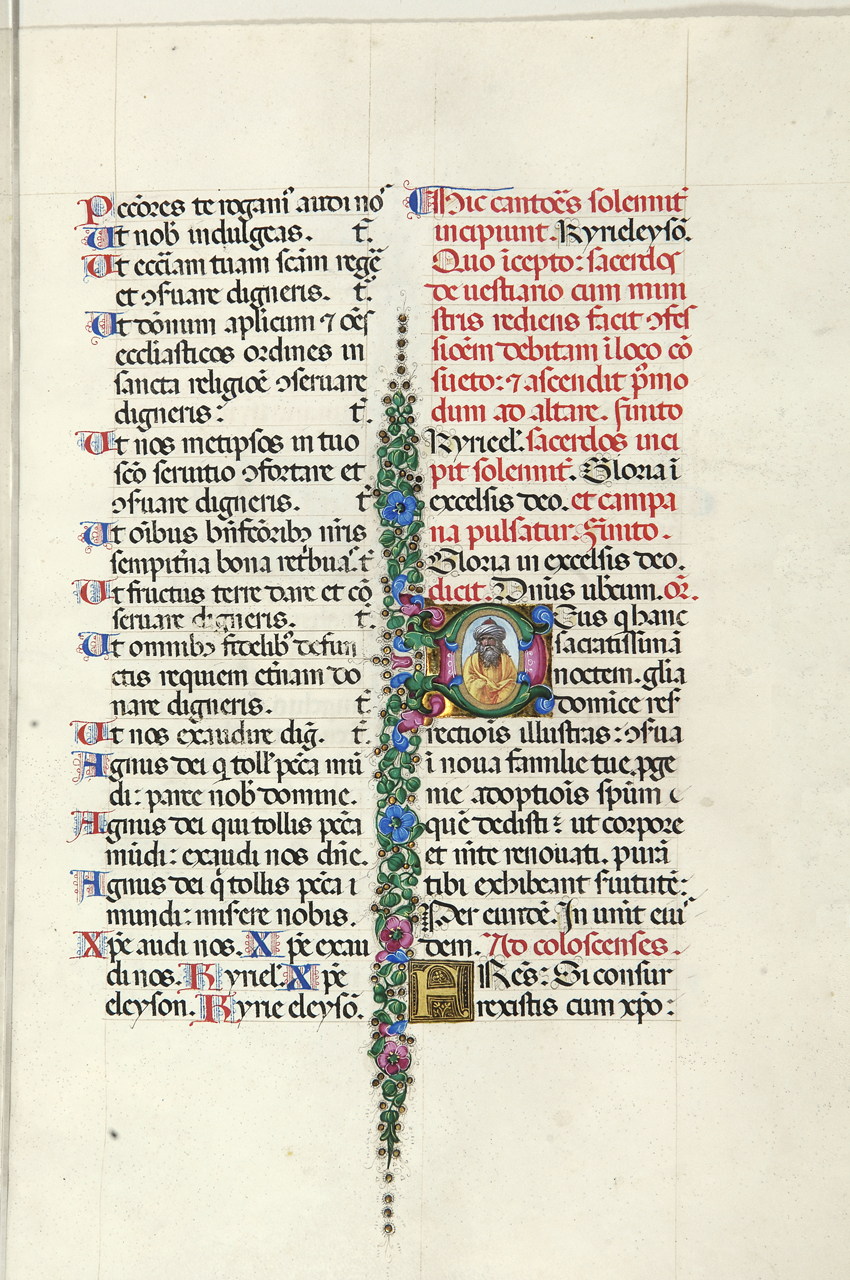 Peccores te rogam' audi nos
Ut nob indulgeas. t.
Ut eccliam tuam scam rege
et ɔſuare digneris. t.
Ut donum aplicum ⁊ oes
eccliasticos ordines in
sancta religioe ɔseruare
digneris: t.
Ut nos metipsos in tuo
sco seruitio ɔfortare et
ɔſuare digneris. t
Ut oibus bnfcorib nris
sempitna bona retbua. t
Ut fructus terre dare et co
seruare digneris. t.
Ut omnib fidelib defun
ctis requiem etnam do
nare digneris. t
Ut nos exaudire dig. t.
Agnus dei q toll' pcca mu
di: parce nob domine.
Agnus dei qui tollis pcca
mudi: exaudi nos dne.
Agnus dei q tollis pcca i
mundi: misere nobis.
Xpe audi nos. Xpe exau
di nos. Kyriel'. Xpe
eleyson. Kyrie eleyso.
Hic cantoes solemnit
incipiunt. Kyrieleyso.
Quo icepto: sacerdos
de uestiario cum mini
stris rediens facit ɔfes
sioem debitam i loco co
sueto: ⁊ ascendit pmo
dum ad altare. finito
Kyrieel'. sacerdos inci
pit solemnit. Gloria i
excelsis deo. et campa
na pulsatur. Finito.
Gloria in excelsis deo.
dicit. Dnius ubcum. or.
Deus q hanc
sacratissima
noctem. glia
domice res
rectiois illustras: ɔſua
i noua familie tue. pge
nie adoptiois spum
que dedisti: ut corpore
et mte renouati. pura
tibi exhibeant fuitute:
Per eunde. In unit eius
dem. Ad coloscenses.
FRes: Si consur
rexistis cum xpo: